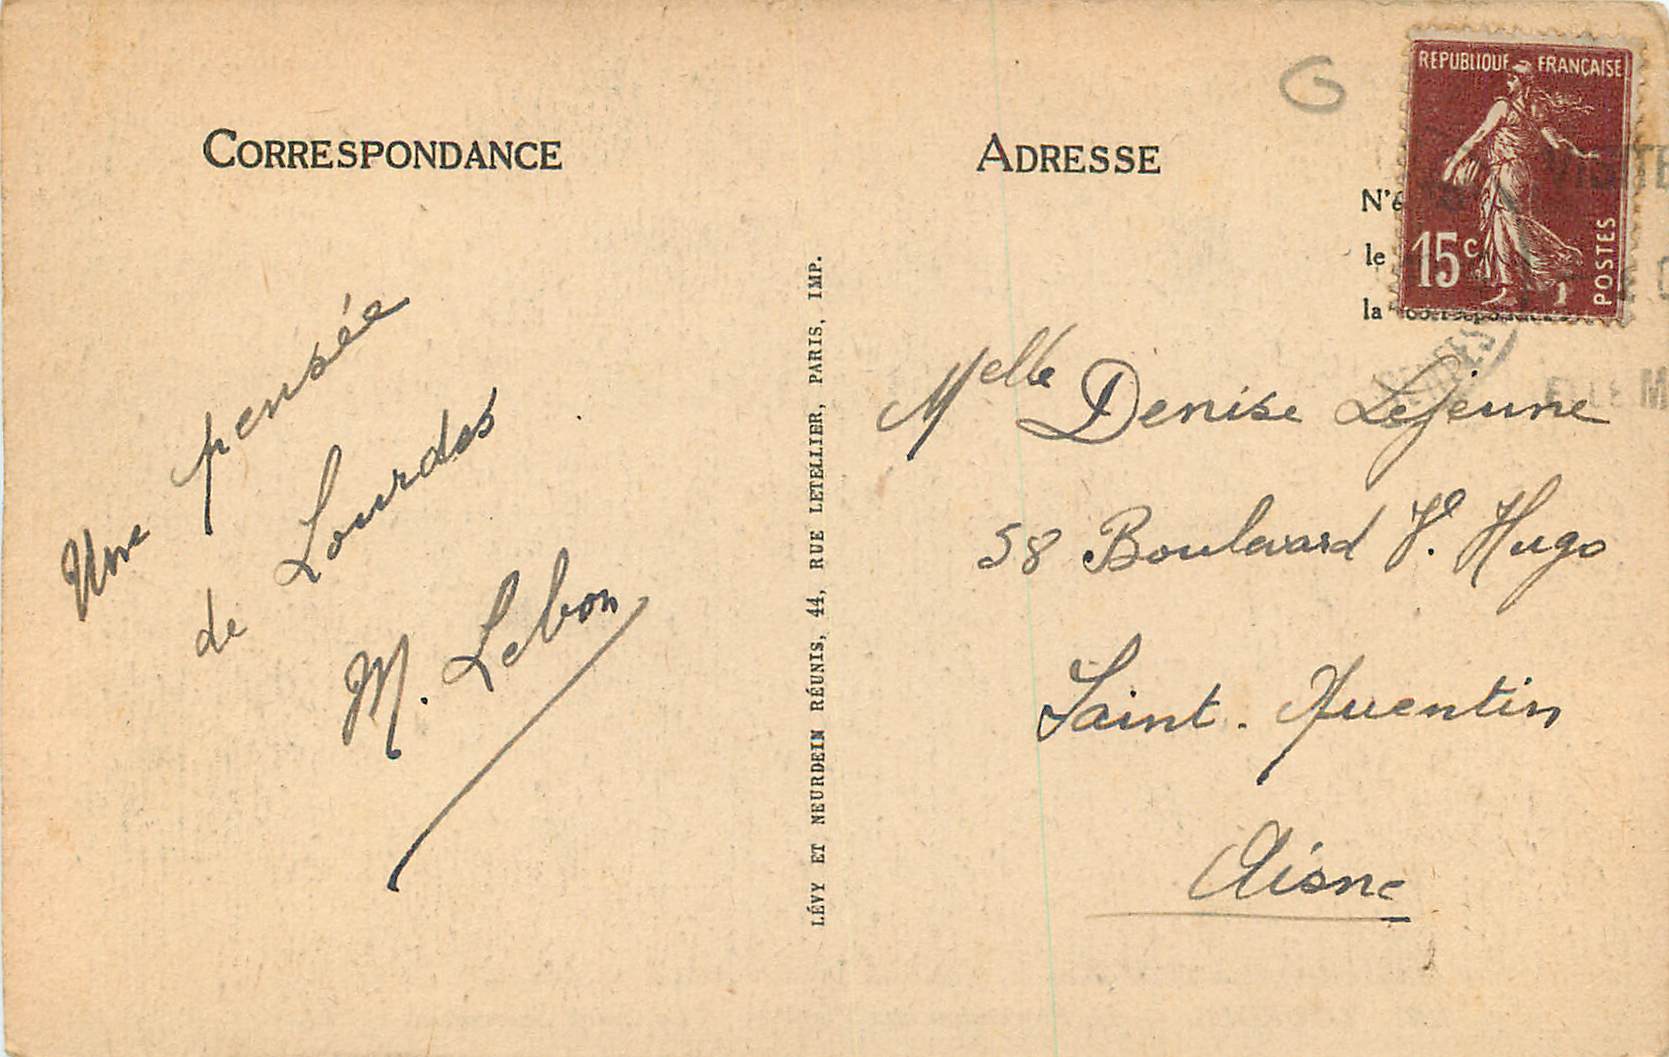 CORRESPONDANCE
Une pensée
de Lourdes
M. Lebon
LÉVY ET NEURDEIN RÉUNIS, 44, RUE LETELLIER, PARIS, IMP.
ADRESSE
G
REPUBLIQUE FRANÇAISE
15c
POSTES
VISITE
le
la
Melle Denise Lejeune
58 Boulevard V. Hugo
Saint. Quentin
Aisne